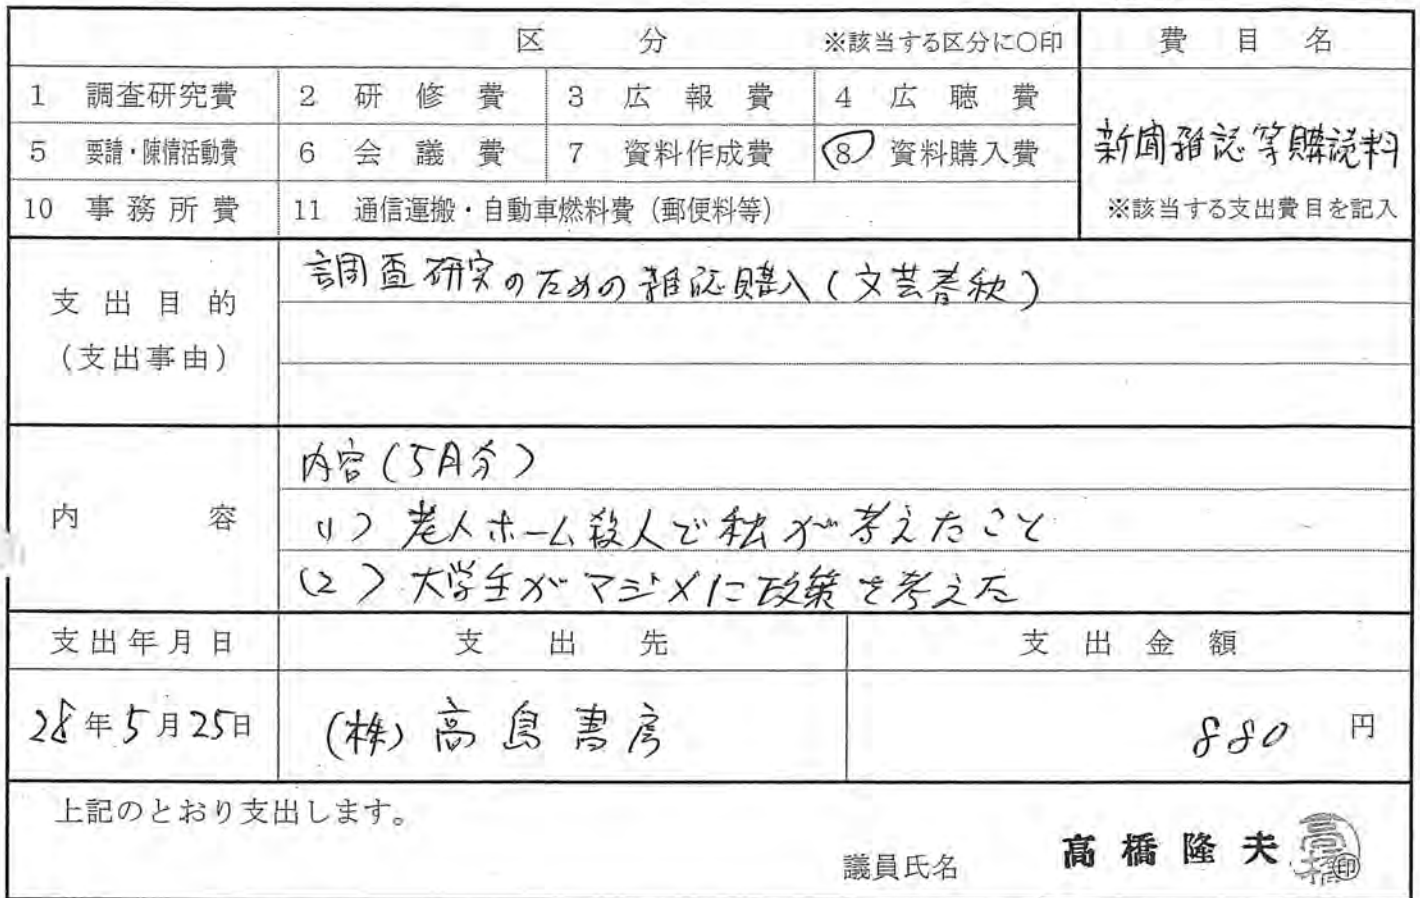 区 分 ※該当する区分に○印 費目名
1 調査研究費 2 研修費 3 広報費 4 広聴費
5 要請・陳情活動費 6 会議費 7 資料作成費 8 資料購入費
新聞雑誌等購読料
10 事務所費 11 通信運搬・自動車燃料費（郵便料等） ※該当する支出費目を記入
支出目的
（支出事由）
調査研究のための雑誌購入（文芸春秋）
内容
内容（5月分）
(1) 老人ホーム殺人で私が考えたこと
(2) 大学生がマジメに政策を考えた
支出年月日 支出先 支出金額
28年5月25日 (株)高島書房 880円
上記のとおり支出します。
議員氏名 高橋隆夫 高橋 印